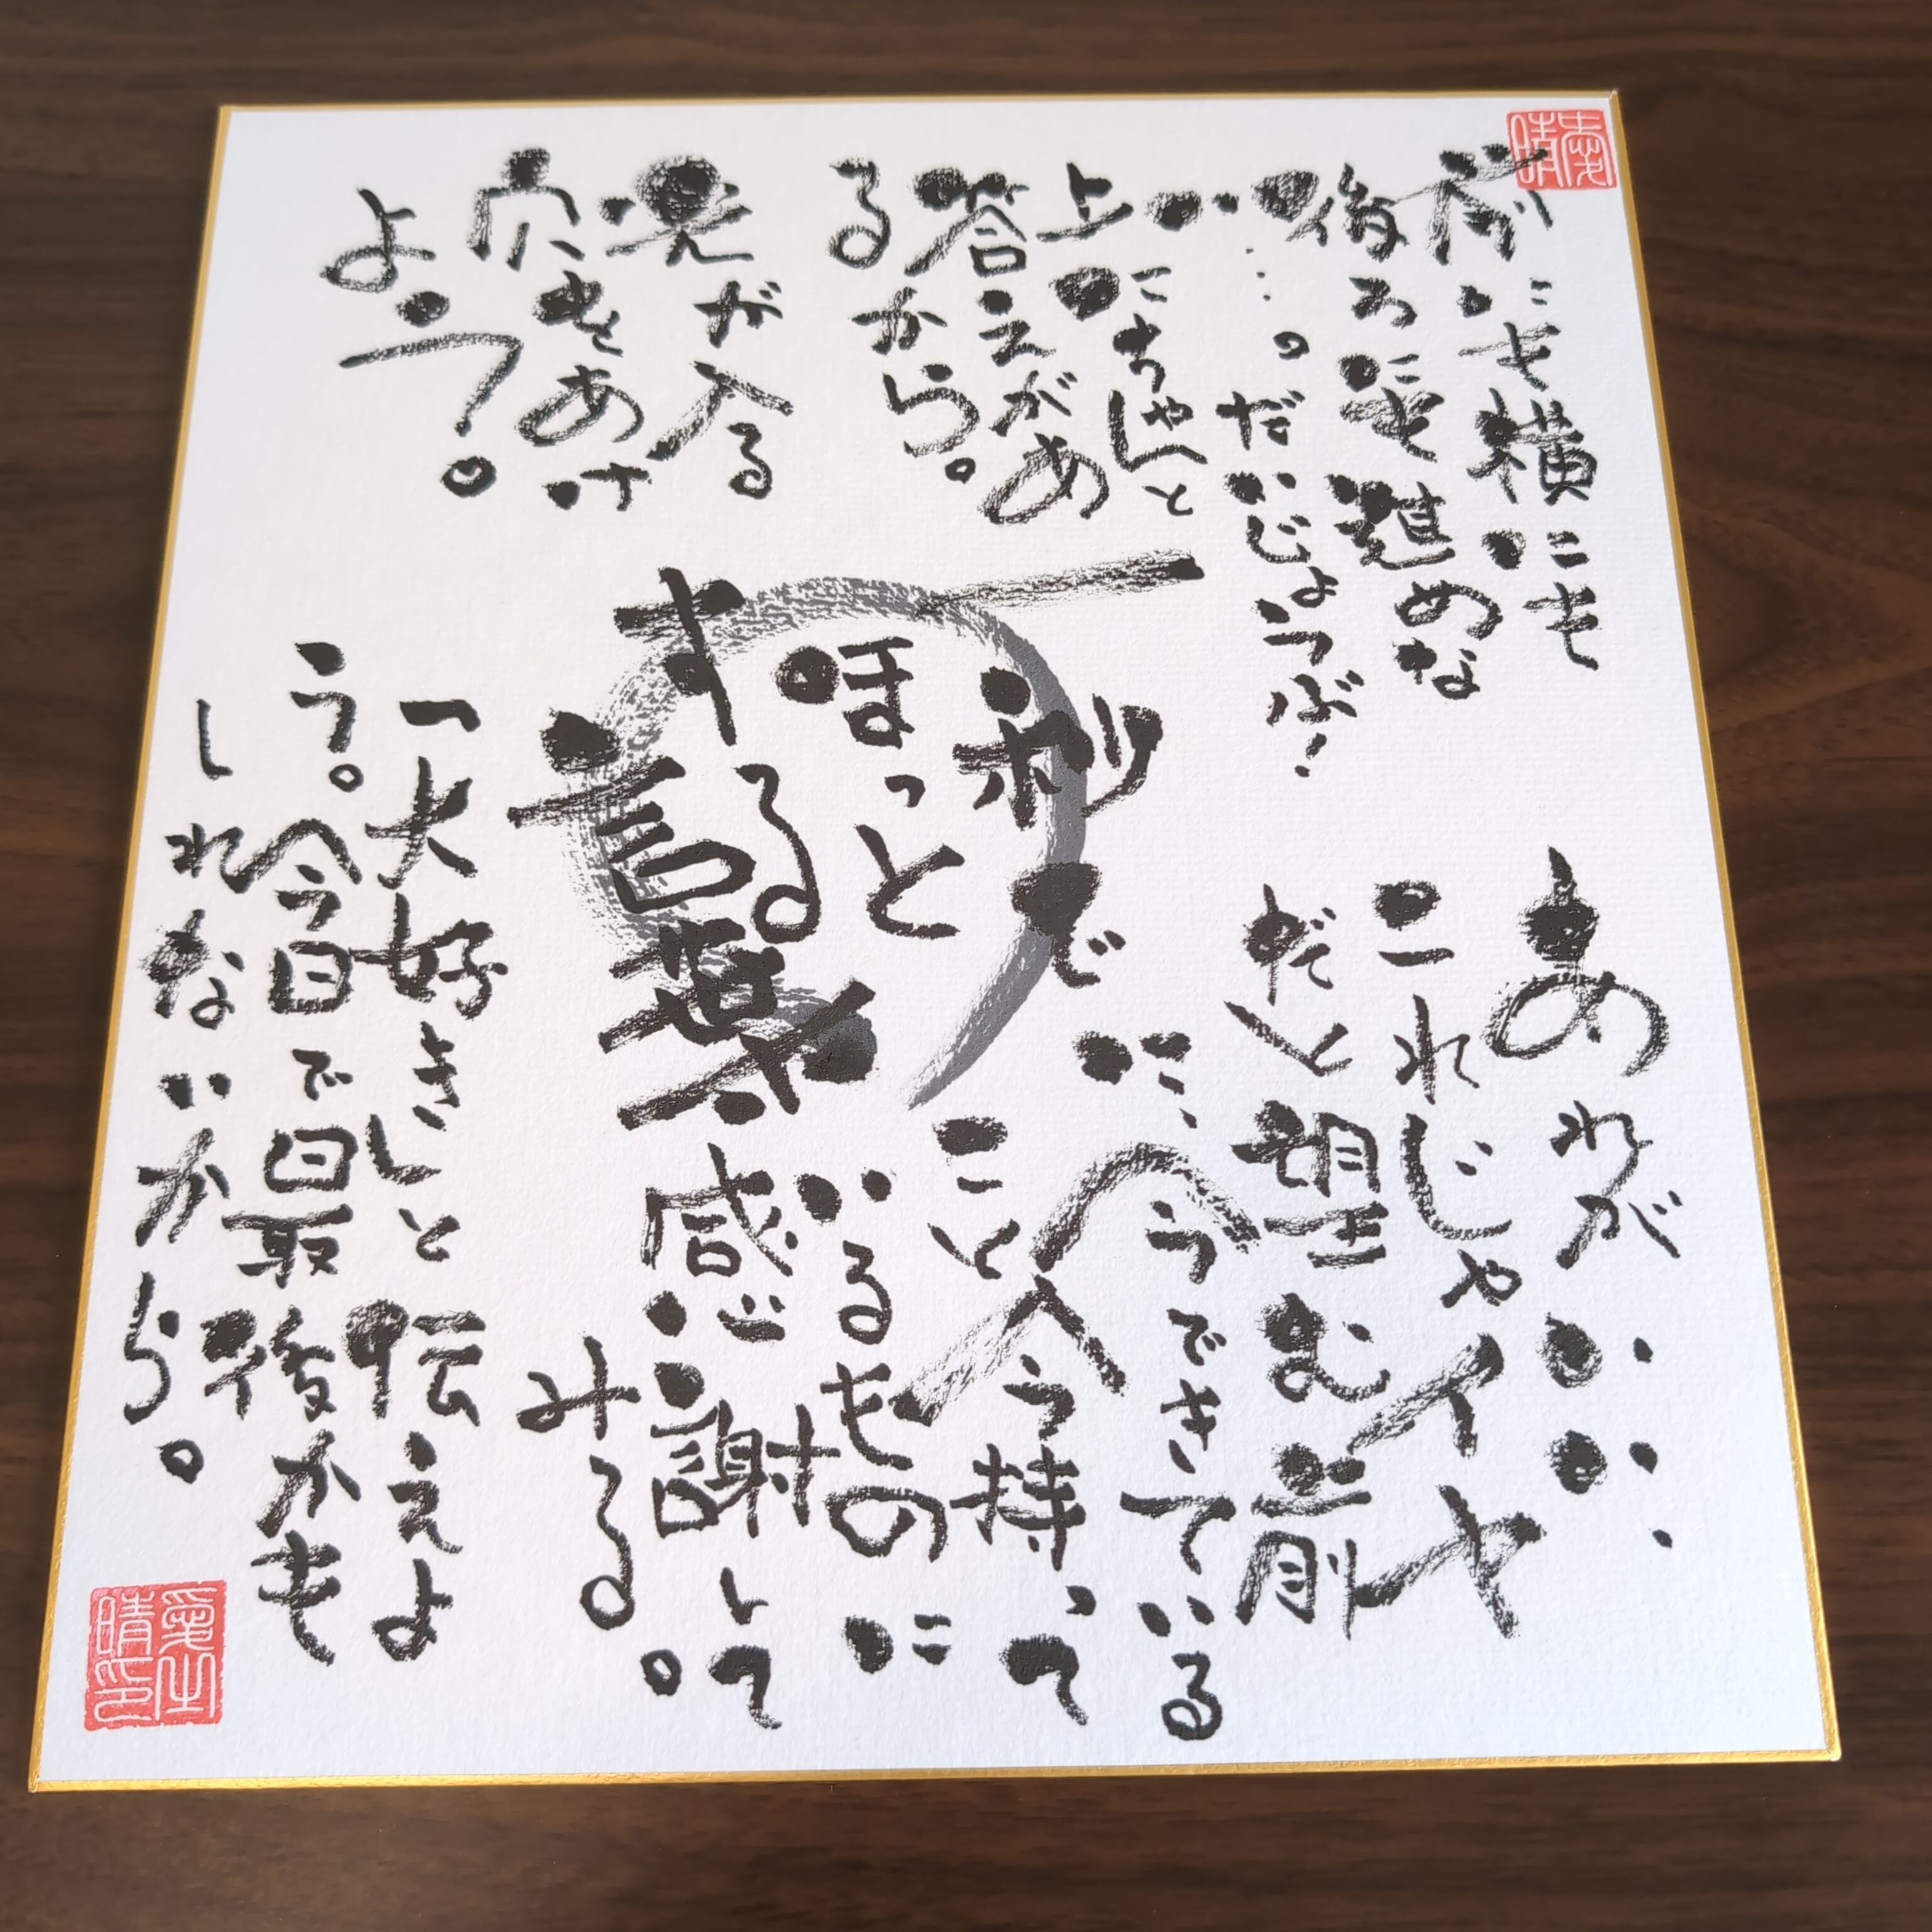 前にも横にも
後ろにも進めな
い…のだいじょうぶ!
上にちゃんと
答えがあ
るから。
光が入る
穴をあけ
よう。
一秒で
ほっと
する
言葉
あれがいい
これじゃイヤ
だと望む前
に、今できている
こと、今持って
いるものに
感謝して
みる。
「大好き」と伝えよ
う。今日で最後かも
しれないから。